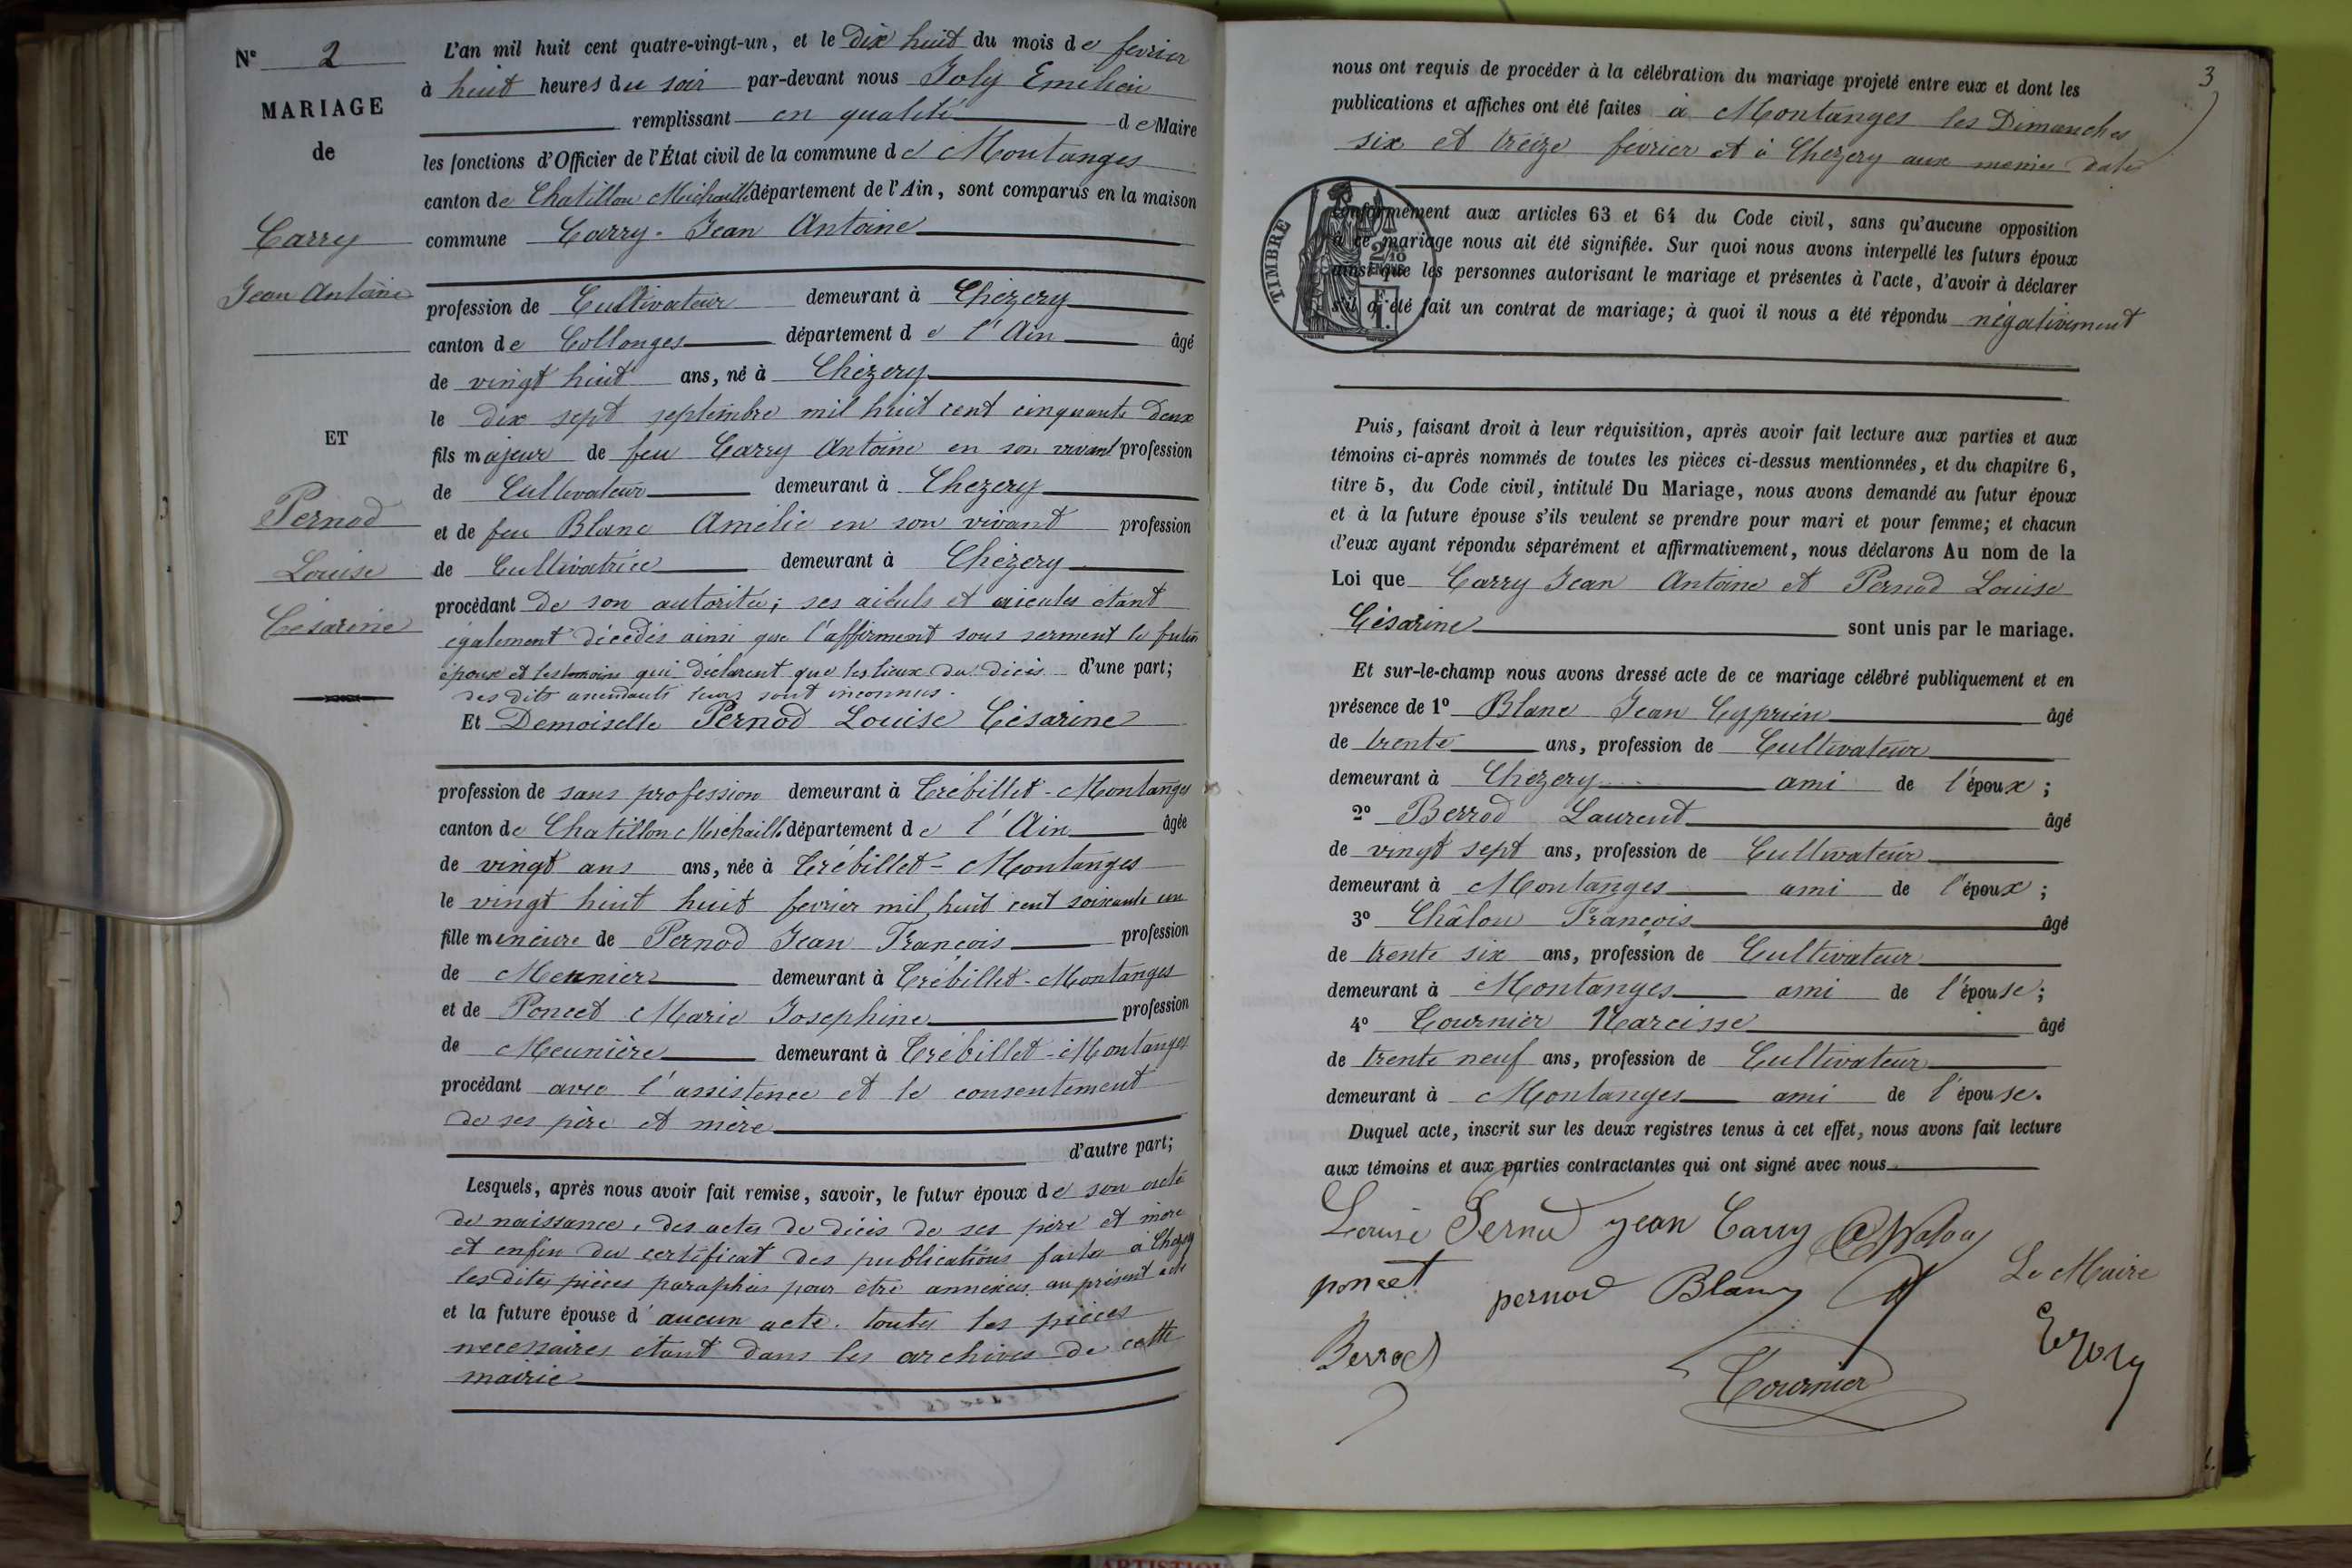 N° 2
MARIAGE
de
Carry
Jean Antoine
ET
Pernod
Louise
Césarine
L'an mil huit cent quatre-vingt-un, et le dix huit du mois de fevrier
à huit heures du soir par-devant nous Joly Emélien
remplissant en qualité de Maire
les fonctions d'Officier de l'État civil de la commune de Montanges
canton de Chatillon Michaille département de l'Ain, sont comparus en la maison
commune Carry Jean Antoine
profession de Cultivateur demeurant à Chézery
canton de Collonges département de l'Ain âgé
de vingt huit ans, né à Chézery
le dix sept septembre mil huit cent cinquante deux
fils majeur de feu Carry Antoine en son vivant profession
de Cultivateur demeurant à Chezery
et de feu Blanc Amélie en son vivant profession
de Cultivatrice demeurant à Chézery
procédant de son autorité; ses aieuls et aieules étant
également décédés ainsi que l'affirment sous serment le futur
époux et les temoins qui déclarent que les lieux du décès d'une part;
des dits ascendants leurs sont inconnus.
Et Demoiselle Pernod Louise Césarine
profession de sans profession demeurant à Trébillet-Montanges
canton de Chatillon Michaille département de l'Ain âgée
de vingt ans ans, née à Trébillet-Montanges
le vingt huit huit fevrier mil huit cent soixante un
fille mineure de Pernod Jean François profession
de Meunier demeurant à Trébillet-Montanges
et de Poncet Marie Josephine profession
de Meunière demeurant à Trébillet-Montanges
procédant avec l'assistence et le consentement
de ses père et mère
d'autre part;
Lesquels, après nous avoir fait remise, savoir, le futur époux de son acte
de naissance, des actes de décès de ses père et mère
et enfin du certificat des publications faites à Chezery
les dites pièces paraphées pour être annexées au présent acte
et la future épouse d'aucun acte. toutes les pièces
necessaires étant dans les archives de cette
mairie
3
nous ont requis de procéder à la célébration du mariage projeté entre eux et dont les
publications et affiches ont été faites à Montanges les Dimanches
six et treize février et à Chezery aux memes dates
TIMBRE
conformément aux articles 63 et 64 du Code civil, sans qu'aucune opposition
à ce mariage nous ait été signifiée. Sur quoi nous avons interpellé les futurs époux
ainsi que les personnes autorisant le mariage et présentes à l'acte, d'avoir à déclarer
s'il a été fait un contrat de mariage; à quoi il nous a été répondu négativement
Puis, faisant droit à leur réquisition, après avoir fait lecture aux parties et aux
témoins ci-après nommés de toutes les pièces ci-dessus mentionnées, et du chapitre 6,
titre 5, du Code civil, intitulé Du Mariage, nous avons demandé au futur époux
et à la future épouse s'ils veulent se prendre pour mari et pour femme; et chacun
d'eux ayant répondu séparément et affirmativement, nous déclarons Au nom de la
Loi que Carry Jean Antoine et Pernod Louise
Césarine sont unis par le mariage.
Et sur-le-champ nous avons dressé acte de ce mariage célébré publiquement et en
présence de 1° Blanc Jean Cyprien âgé
de trente ans, profession de Cultivateur
demeurant à Chezery ami de l'époux;
2° Berrod Laurent âgé
de vingt sept ans, profession de Cultivateur
demeurant à Montanges ami de l'époux;
3° Châlon François âgé
de trente six ans, profession de Cultivateur
demeurant à Montanges ami de l'épouse;
4° Tournier Narcisse âgé
de trente neuf ans, profession de Cultivateur
demeurant à Montanges ami de l'épouse.
Duquel acte, inscrit sur les deux registres tenus à cet effet, nous avons fait lecture
aux témoins et aux parties contractantes qui ont signé avec nous
Louise Pernod Jean Carry
poncet pernod Blanc Le Maire
Berrod Tournier